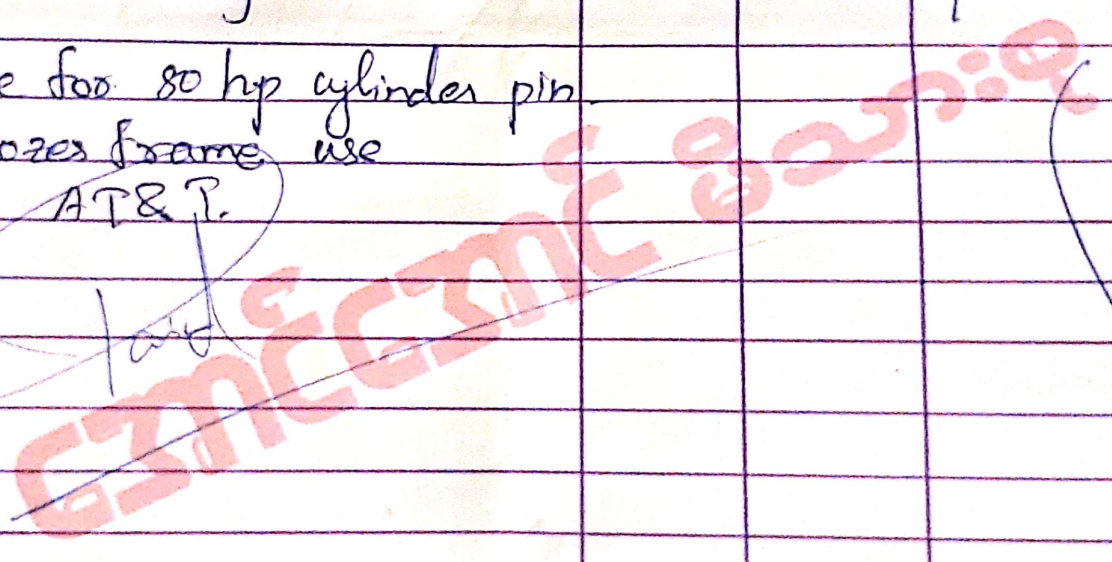 e for 80 hp cylinder pin
ozer frame use
AT&T.
Paid
အောင်အောင် မိသားစု